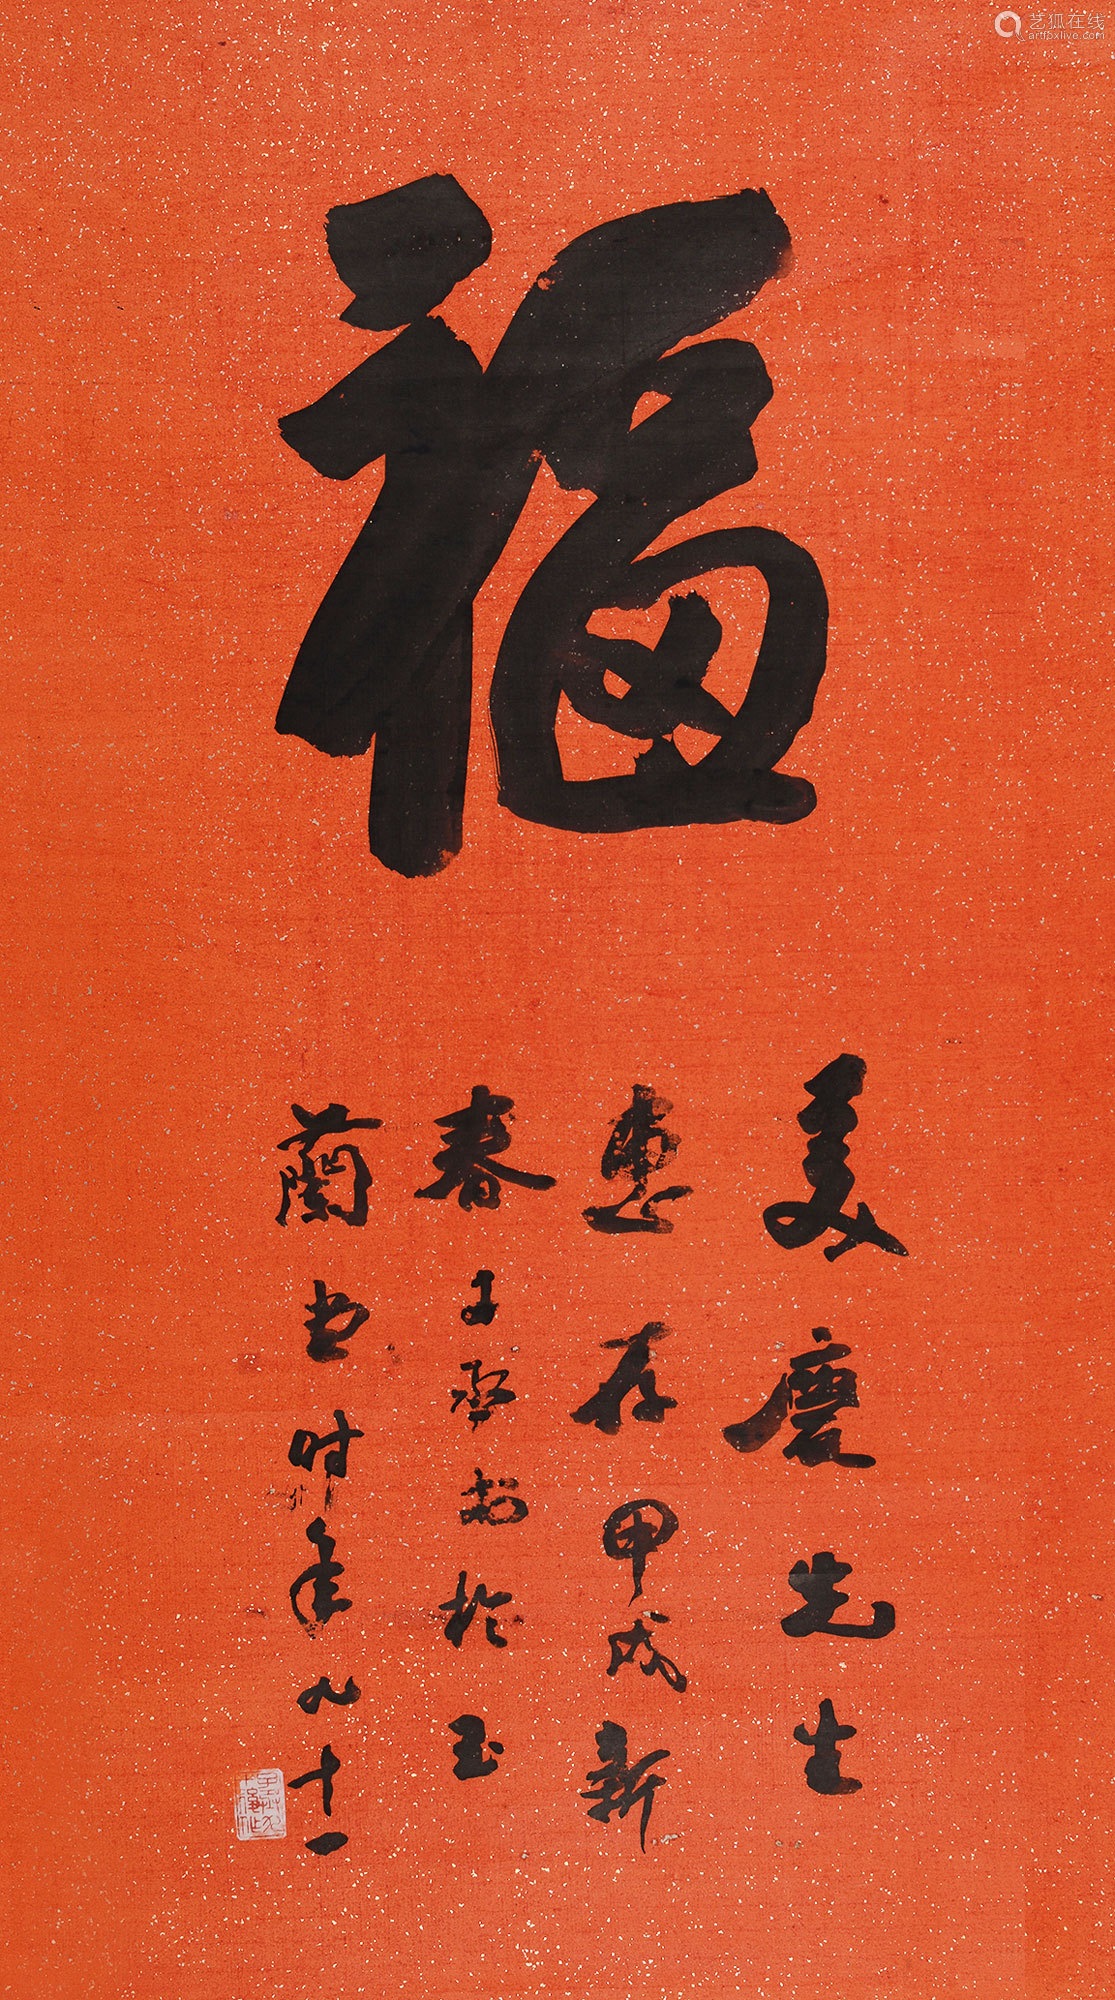 艺狐在线
artfoxlive.com
福
美慶先生
惠存甲戌新
春王丞書於玉
蘭堂时年九十一